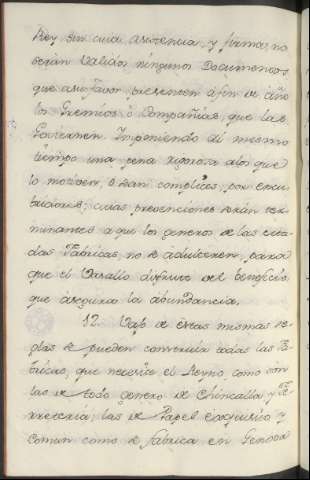 Rey sin cuia asistencia, y firma, no
serán validos ningunos Documentos
que à su favor presenten á fin de año
los Gremios ò Compañias, que las
Goviernen Imponiendo al mismo
tiempo una pena rigorosa alos que
lo motiven, ò sean complices, por encu
bridores; cuias prevenciones serán ter
minantes a que los generos de las cita
das Fabricas, no se adulteren, para
que el Vasallo disfrute del beneficio
que asegura la abundancia.
12. Vajo de estas mismas re
glas se pueden convertir todas las Fa
bricas, que necesite el Reyno, como son
las de todo genero de Chincalla y Fe
rreteria; las de Papel exquisito y
comun como se fabrica en Genova